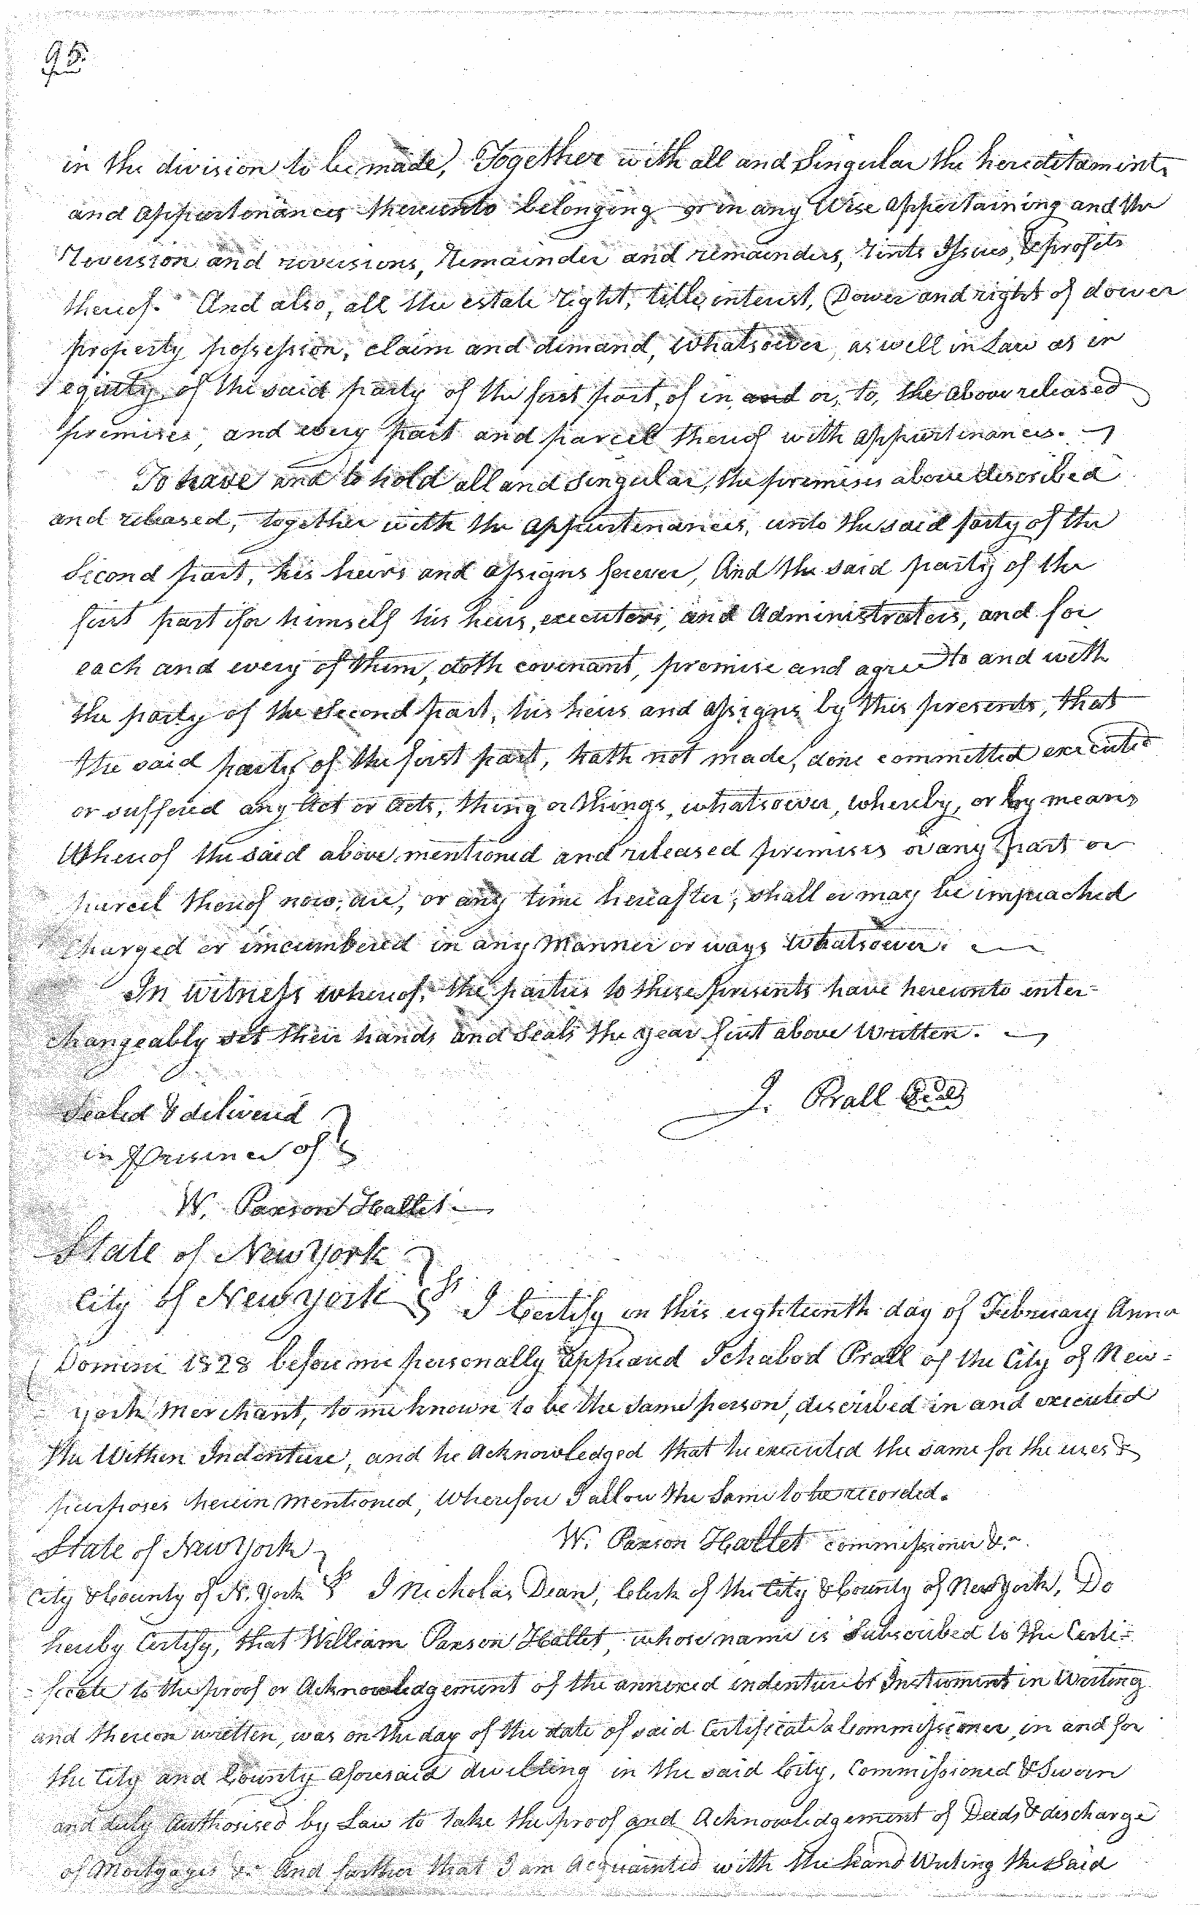 95.
in the division to be made, Together with all and Singular the hereditaments
and appurtenances thereunto belonging or in any Wise appertaining and the
reversion and reversions, remainder and remainders, rents Issues, & profits
thereof. And also, all the estate right, title, interest, Dower and right of dower
property possession, claim and demand, Whatsoever, as well in Law as in
equity of the said party of the first part, of in and or, to, the above released
premises, and every part and parcel thereof with appurtenances.
To have and to hold all and Singular, the premises above described
and released, together with the appurtenances, unto the said party of the
Second part, his heirs and assigns forever, And the said party of the
first part for himself his heirs, executors, and Administrators, and for
each and every of them, doth covenant, promise and agree to and with
the party of the Second part, his heirs and assigns by this presents, that
the said party of the first part, hath not made, done committed executed
or suffered any Act or Acts, thing or things, whatsoever, whereby, or by means
Whereof the said above mentioned and released premises or any part or
parcel thereof now, are, or any time hereafter, shall or may be impeached
Charged or incumbered in any Manner or ways Whatsoever.
In Witness whereof, the parties to these presents have hereunto inter=
changeably set their hands and Seals the year first above Written.
Sealed & delivered
J. Prall Seal
in Presence of
W. Paxson Hallet
State of New York
City of New York ss I Certify on this eighteenth day of February Anno
Domini 1828 before me personally appeared Ichabod Prall of the City of New=
york Merchant, to me known to be the same person, discribed in and executed
the Within Indenture, and he Acknowledged that he executed the same for the uses &
purposes herein mentioned, Wherefore I allow the Same to be recorded.
State of New York W. Paxson Hallet commissioner &c.
City & County of N. York ss I Nicholas Dean, Clerk of the City & County of New York, Do
hereby Certify, that William Paxson Hallet, whose name is Subscribed to the Certi=
=ficate to the proof or Acknowledgement of the annexed indenture or Instrument in Writing
and thereon written, was on the day of the date of said Certificate a Commissioner, in and for
the City and County aforesaid dwelling in the said City, Commissioned & Sworn
and duly Authorised by Law to take the proof and Acknowledgement of Deeds & discharge
of Mortgages &c. And further that I am Acquainted with the hand Writing the Said